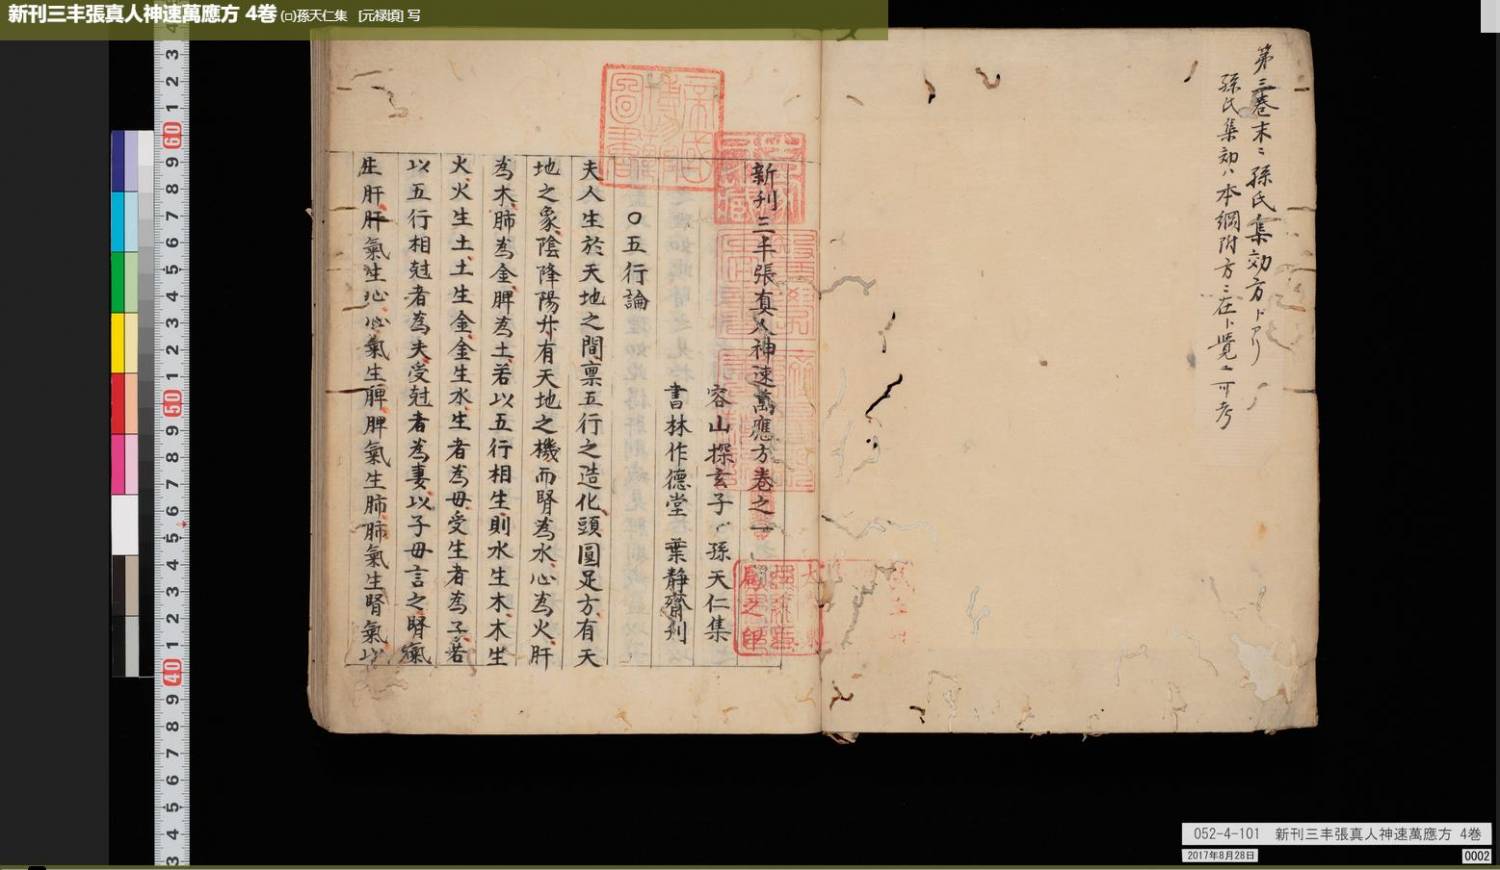 新刊三丰張真人神速萬應方 4巻 (□)孫天仁集 [元禄頃] 写
第三巻末ニ孫氏集効方トアリ
孫氏集効ハ本綱附方ニ在ト覽ユ可考
新刊三丰張真人神速萬應方卷之一
容山探玄子 孫天仁集
書林作德堂 葉靜齋刋
○五行論
夫人生於天地之間禀五行之造化頭圓足方有天
地之象陰降陽升有天地之機而腎為水心為火肝
為木肺為金脾為土若以五行相生則水生木木生
火火生土土生金金生水生者為母受生者為子若
以五行相尅者為夫受尅者為妻以子母言之腎氣
生肝肝氣生心心氣生脾脾氣生肺肺氣生腎氣以
052-4-101 新刊三丰張真人神速萬應方 4巻
2017年8月28日
0002